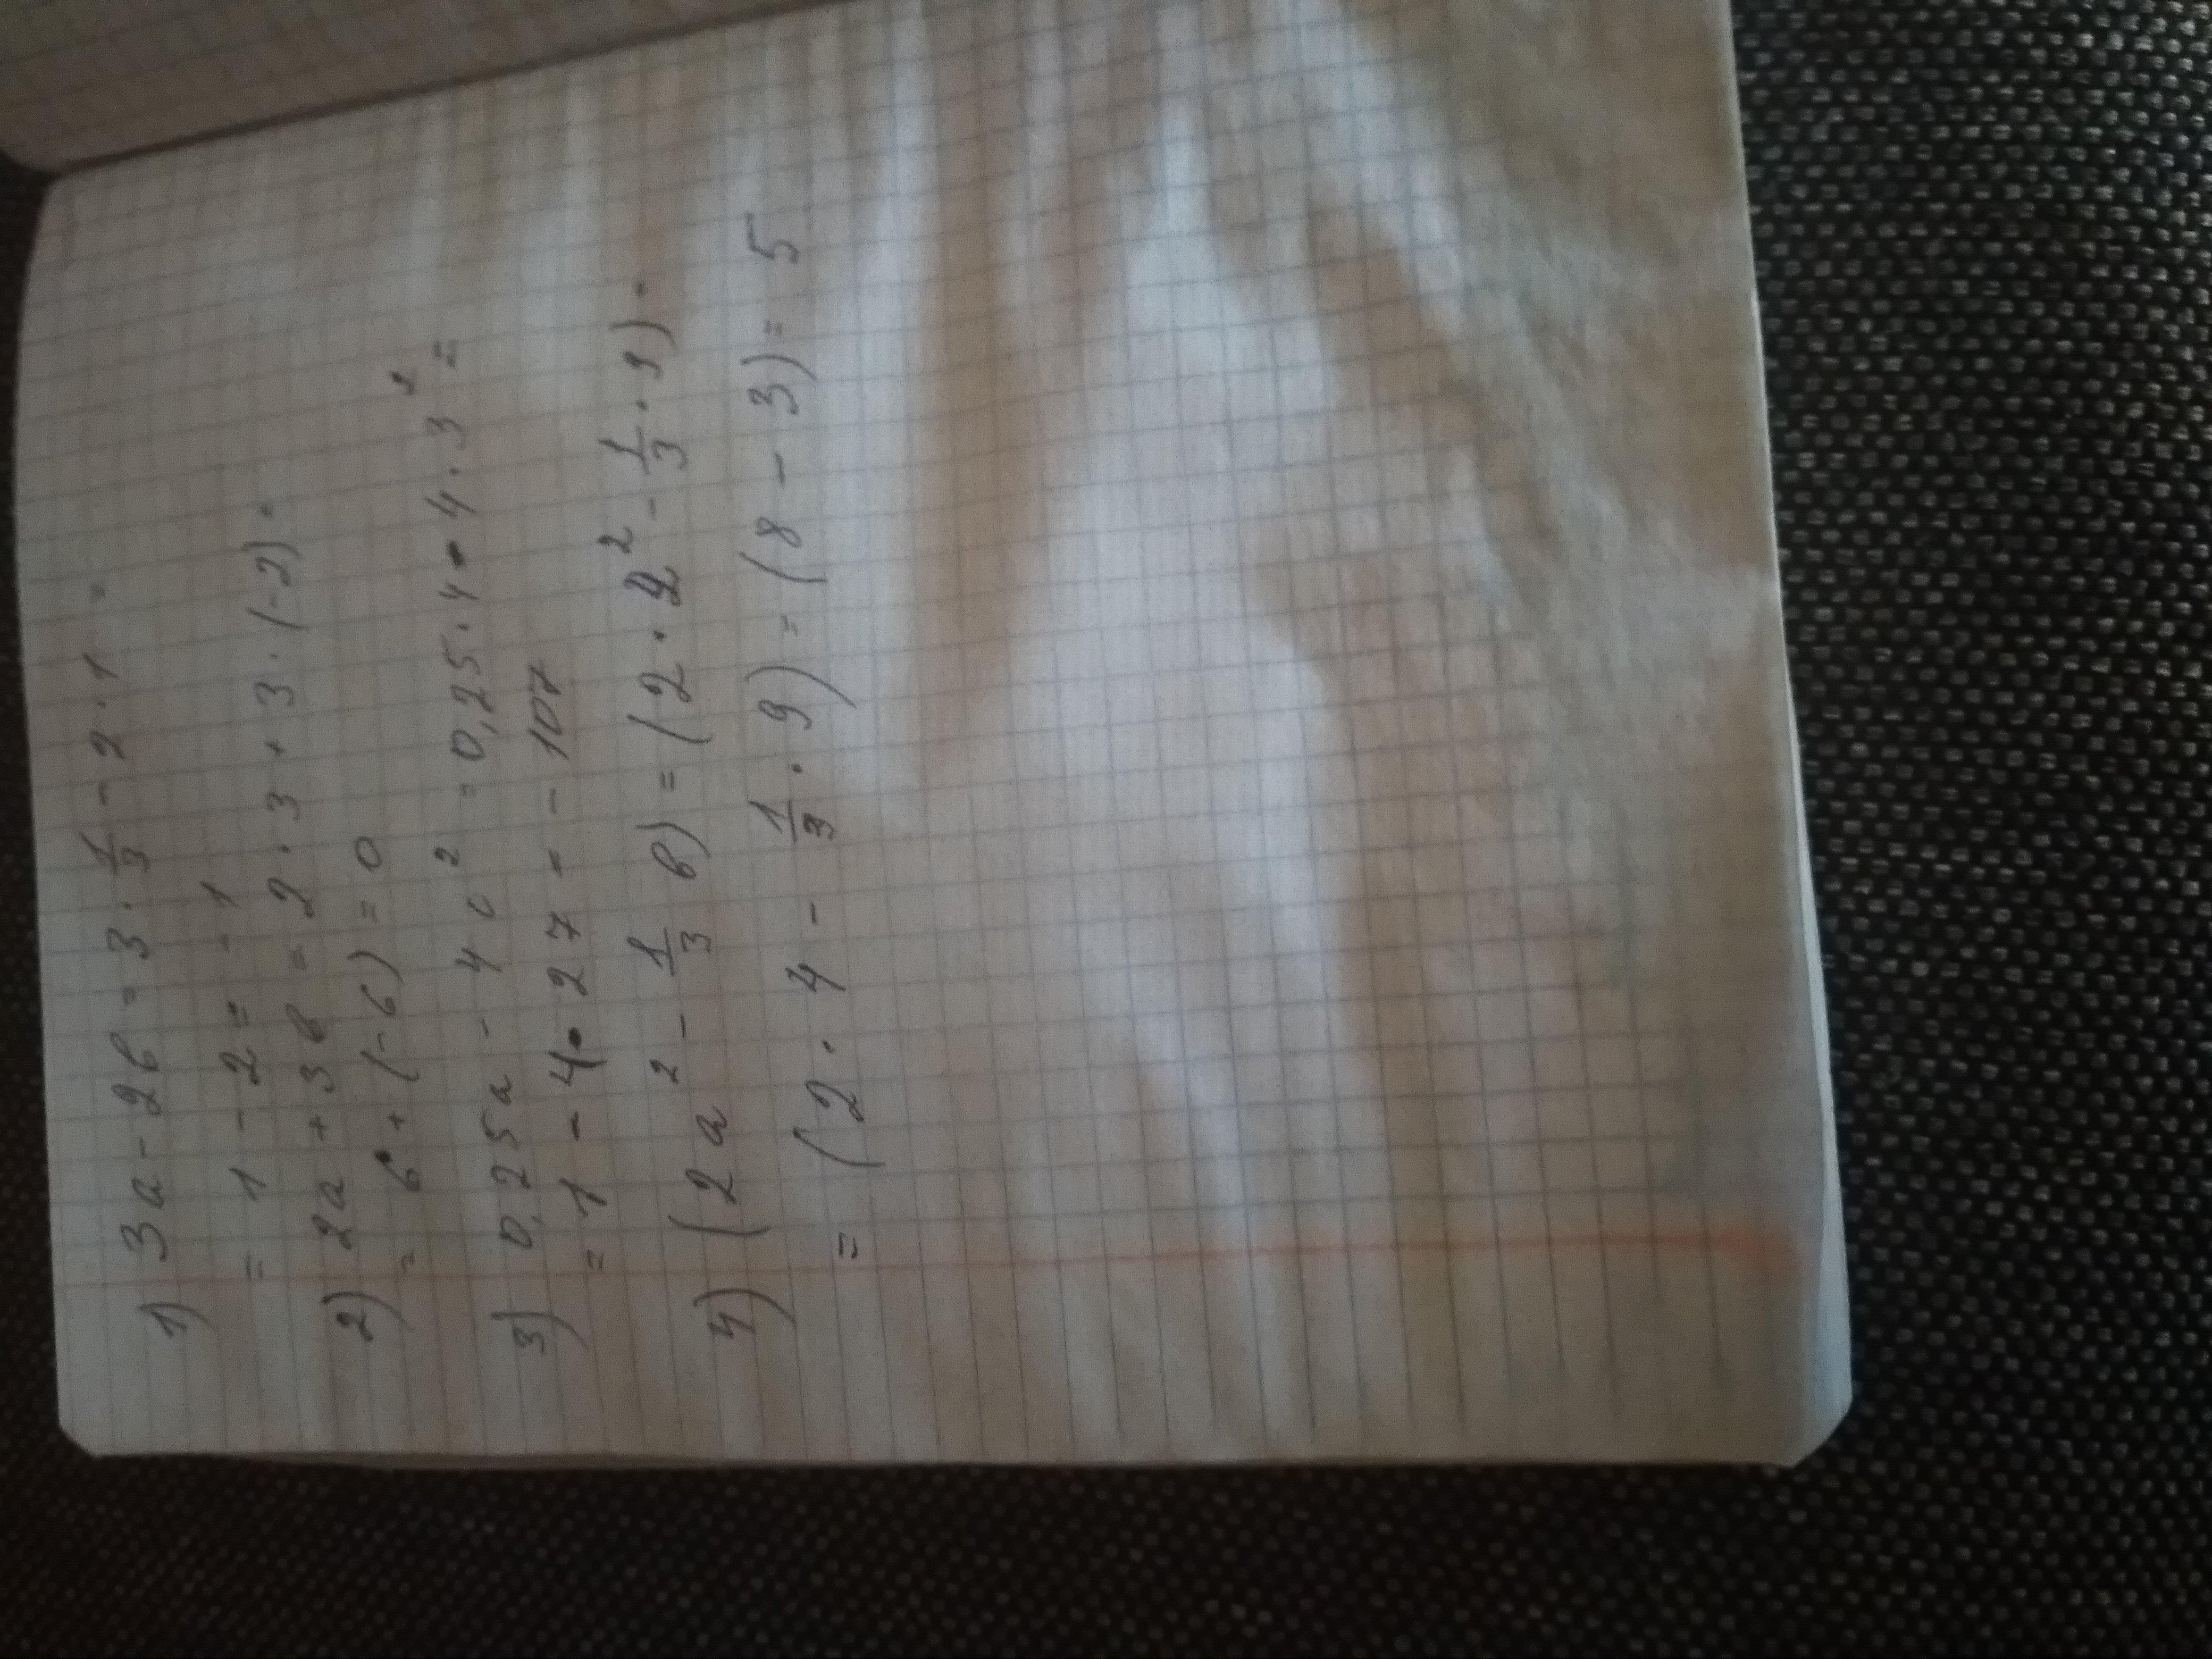 1) 3a - 2b = 3 · 1/3 - 2 · 1 =
= 1 - 2 = - 1
2) 2a + 3b = 2 · 3 + 3 · (-2) =
= 6 + (-6) = 0
3) 0,25a - 4c² = 0,25 · 4 · 4 · 3² =
= 1 - 4 · 27 = - 107
4) (2a² - 1/3 b) = (2 · 2² - 1/3 · 9) =
= (2 · 4 - 1/3 · 9) = (8 - 3) = 5